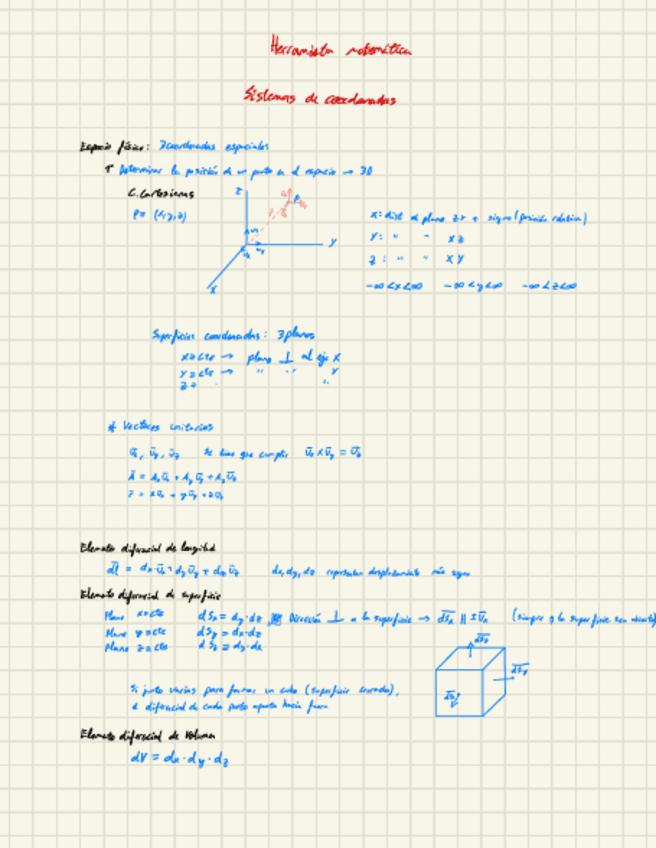 Herramienta matemática
Sistemas de coordenadas
Espacio físico: 3 coordenadas espaciales
Determinar la posición de un punto en el espacio → 3D
C. Cartesianas
P = (x, y, z)
z
P
y
x
x: dist al plano zy + signo (posición relativa)
y: " " xz
z: " " xy
-∞<x<∞ -∞<y<∞ -∞<z<∞
Superficies coordenadas: 3 planos
x = cte → plano ⊥ al eje x
y = cte → " " y
z = "
* Vectores unitarios
ūx, ūy, ūz se tiene que cumplir ūx × ūy = ūz
Ā = Ax ūx + Ay ūy + Az ūz
r̄ = xūx + yūy + zūz
Elemento diferencial de longitud
dl = dx·ūx + dy ūy + dz ūz dx, dy, dz representan desplazamiento
Elemento diferencial de superficie
Plano x=cte dSx = dy·dz Dirección ⊥ a la superficie → dSx ∥ ±ūx (siempre q la superficie sea abierta
Plano y=cte dSy = dx·dz
Plano z=cte dSz = dy·dx
dSz
dSy
dSx
Si junto varias para formar un cubo (superficie cerrada),
el diferencial de cada punto apunta hacia fuera
Elemento diferencial de Volumen
dV = dx·dy·dz